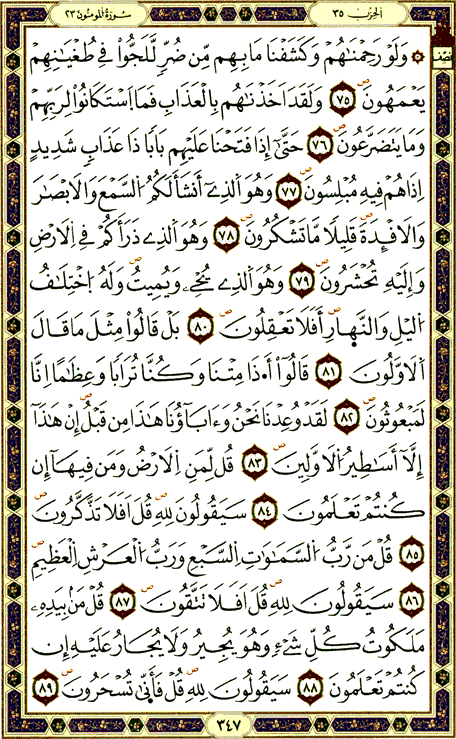 الحِزْب ٣٥
سُورَةُ المُومِنُون ٢٣
نصف
۞ وَلَوْ رَحِمْنَٰهُمْ وَكَشَفْنَا مَا بِهِم مِّن ضُرٍّ لَّلَجُّواْ فِے طُغْيَٰنِهِمْ
يَعْمَهُونَۖ ٧٥ وَلَقَدَ اَخَذْنَٰهُم بِالْعَذَابِ فَمَا اَ۪سْتَكَانُواْ لِرَبِّهِمْ
وَمَا يَتَضَرَّعُونَۖ ٧٦ حَتَّىٰٓ إِذَا فَتَحْنَا عَلَيْهِم بَاباٗ ذَا عَذَابٖ شَدِيدٍ
اِذَا هُمْ فِيهِ مُبْلِسُونَۖ ٧٧ وَهُوَ اَ۬لذِےٓ أَنشَأَ لَكُمُ اُ۬لسَّمْعَ وَالَابْصَٰرَ
وَالَافْـِٕدَةَۖ قَلِيلاٗ مَّا تَشْكُرُونَۖ ٧٨ وَهُوَ اَ۬لذِے ذَرَأَكُمْ فِے اِ۬لَارْضِ
وَإِلَيْهِ تُحْشَرُونَۖ ٧٩ وَهُوَ اَ۬لذِے يُحْيِۦ وَيُمِيتُۖ وَلَهُ اُ۪خْتِلَٰفُ
اُ۬ليْلِ وَالنَّهَارِۖ أَفَلَا تَعْقِلُونَۖ ٨٠ بَلْ قَالُواْ مِثْلَ مَا قَالَ
اَ۬لَاوَّلُونَ ٨١ قَالُوٓاْ أَ.ذَا مِتْنَا وَكُنَّا تُرَاباٗ وَعِظَٰماً اِنَّا
لَمَبْعُوثُونَۖ ٨٢ لَقَدْ وُعِدْنَا نَحْنُ وَءَابَآؤُنَا هَٰذَا مِن قَبْلُۖ إِنْ هَٰذَآ
إِلَّآ أَسَٰطِيرُ اُ۬لَاوَّلِينَۖ ٨٣ قُل لِّمَنِ اِ۬لَارْضُ وَمَن فِيهَآ إِن
كُنتُمْ تَعْلَمُونَۖ ٨٤ سَيَقُولُونَ لِلهِۖ قُلَ اَفَلَا تَذَّكَّرُونَۖ
٨٥ قُلْ مَن رَّبُّ اُ۬لسَّمَٰوَٰتِ اِ۬لسَّبْعِ وَرَبُّ اُ۬لْعَرْشِ اِ۬لْعَظِيمِۖ
٨٦ سَيَقُولُونَ لِلهِۖ قُلَ اَفَلَا تَتَّقُونَۖ ٨٧ قُلْ مَنۢ بِيَدِهِۦ
مَلَكُوتُ كُلِّ شَےْءٖ وَهُوَ يُجِيرُ وَلَا يُجَارُ عَلَيْهِ إِن
كُنتُمْ تَعْلَمُونَۖ ٨٨ سَيَقُولُونَ لِلهِۖ قُلْ فَأَنّ۪ىٰ تُسْحَرُونَۖ ٨٩
٣٤٧